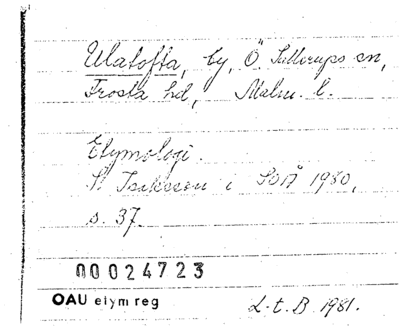 Ulatofta, by, Ö. Sallerups sn,
Frosta hd, Malm. l.
Etymologi.
S. Isaksson i SOÅ 1980,
s. 37.
00024723
OAU etym reg
L.t.B. 1981.